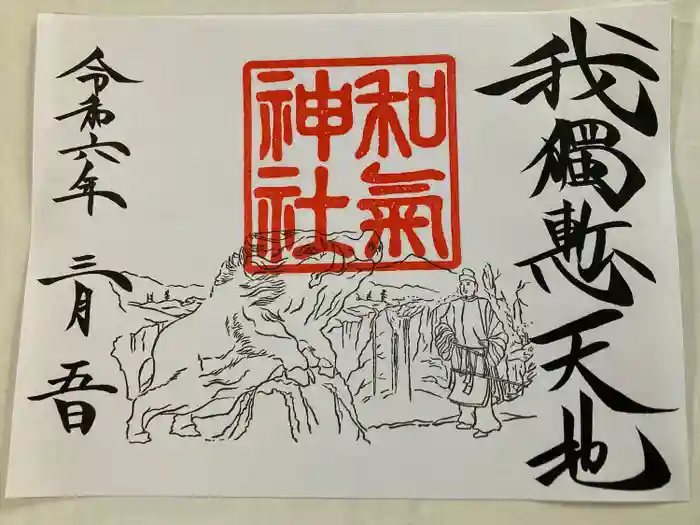 我獨慙天地
和氣
神社
令和六年 三月 五日